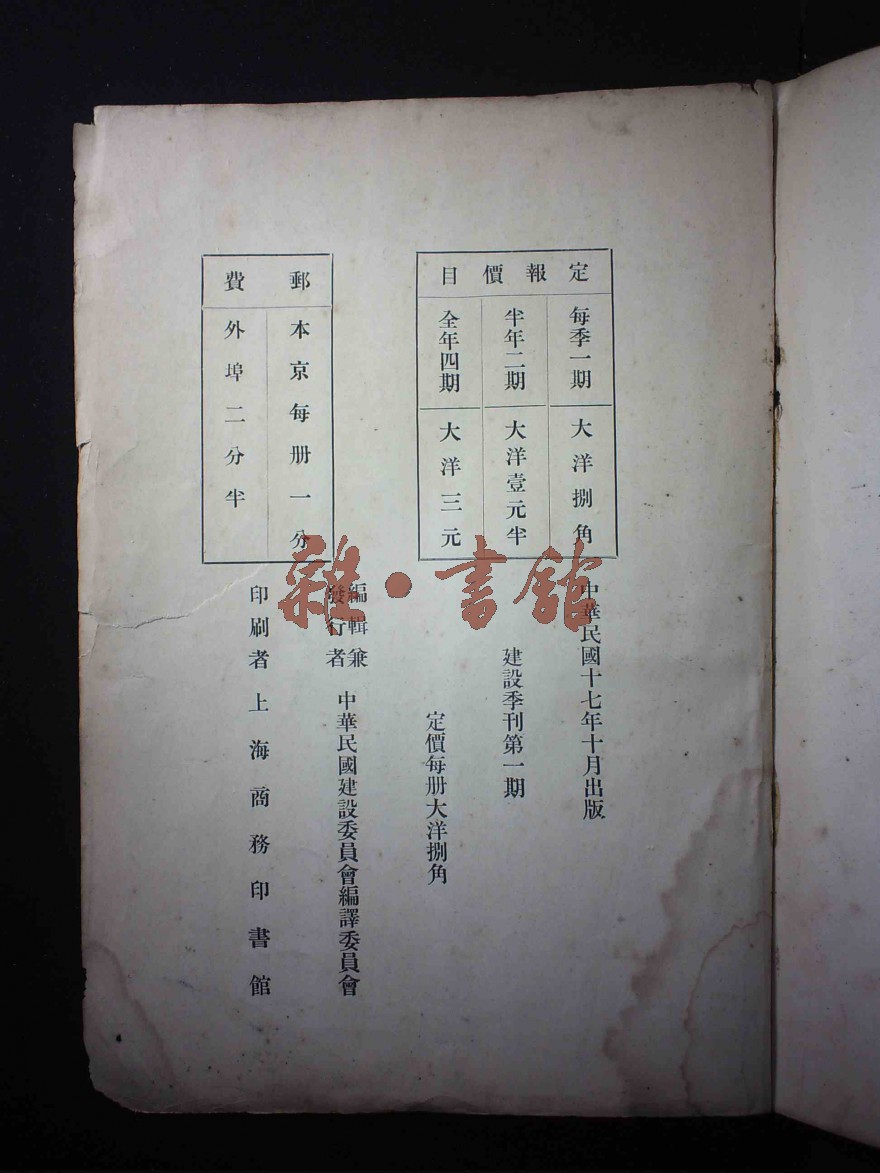 定報價目
每季一期
大洋捌角
半年二期
大洋壹元半
全年四期
大洋三元
郵費
本京每册一分
外埠二分半
中華民國十七年十月出版
建設季刊第一期
定價每册大洋捌角
編輯兼
發行者
中華民國建設委員會編譯委員會
印刷者上海商務印書館
雜·書館